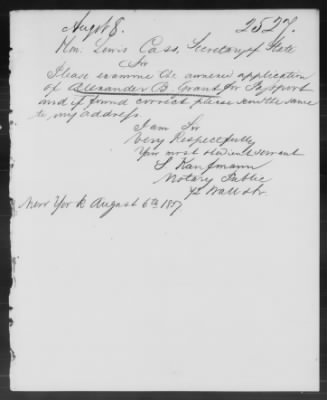 Augst 8. 2527.
Hon. Lewis Cass, Secretary of State
Sir
Please examine the annexed application
of Alexander B. Grant for Passport
and if found correct please send the same
to my address.
I am Sir
Very Respectfully
Your most obedient servant
S. Kaufmann
Notary Public
Wall str.
New York August 6th 1857